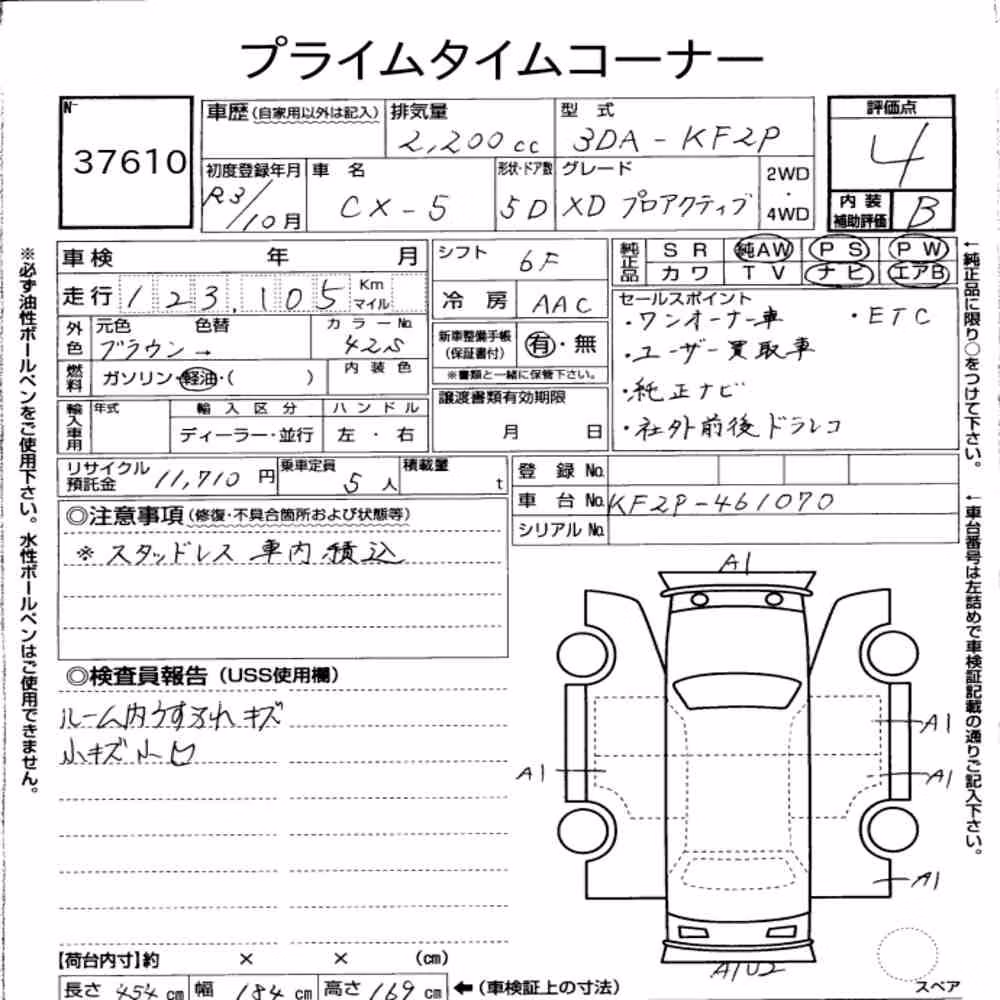 プライムタイムコーナー
No
37610
車歴(自家用以外は記入)
排気量
2,200cc
型式
3DA-KF2P
評価点
4
初度登録年月
R3/10月
車名
CX-5
形状・ドア数
5D
グレード
XD プロアクティブ
2WD
・
4WD
内装
補助評価
B
車検 年 月
シフト
6F
純正品
SR 純AW PS PW
カワ TV ナビ エアB
走行 123,105 Km マイル
冷房
AAC
セールスポイント
・ワンオーナー車 ・ETC
・ユーザー買取車
・純正ナビ
・社外前後ドラレコ
外色
元色 色替
ブラウン→
カラーNo.
42S
新車整備手帳
(保証書付)
有・無
※書類と一緒に保管下さい。
燃料
ガソリン・軽油・( )
内装色
譲渡書類有効期限
月 日
輸入車用
年式
輸入区分
ディーラー・並行
ハンドル
左・右
リサイクル
預託金
11,710円
乗車定員
5人
積載量
t
登録No.
車台No.
KF2P-461070
シリアルNo.
◎注意事項(修復・不具合箇所および状態等)
※スタッドレス 車内積込
◎検査員報告(USS使用欄)
ルーム内うすよごれ キズ
小キズ小凹
A1
A1
A1
A1
A1
A1U2
スペア
【荷台内寸】約 × × (cm)
長さ 454cm 幅 184cm 高さ 169cm
←(車検証上の寸法)
※必ず油性ボールペンをご使用下さい。水性ボールペンはご使用できません。
←純正品に限り○をつけて下さい。
←車台番号は左詰めで車検証記載の通りご記入下さい。